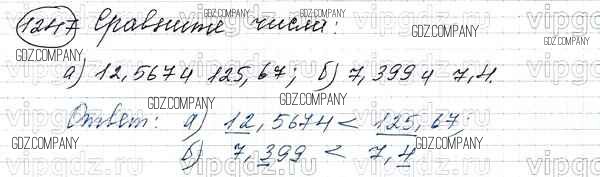 1247 Сравните числа:
GDZ.COMPANY GDZ.COMPANY GDZ.COMPANY
а) 12,567 и 125,67; б) 7,399 и 7,4.
GDZ.COMPANY GDZ.COMPANY GDZ.COMPANY
Ответ: а) 12,5674 < 125,67;
б) 7,399 < 7,4
GDZ.COMPANY GDZ.COMPANY GDZ.COMPANY